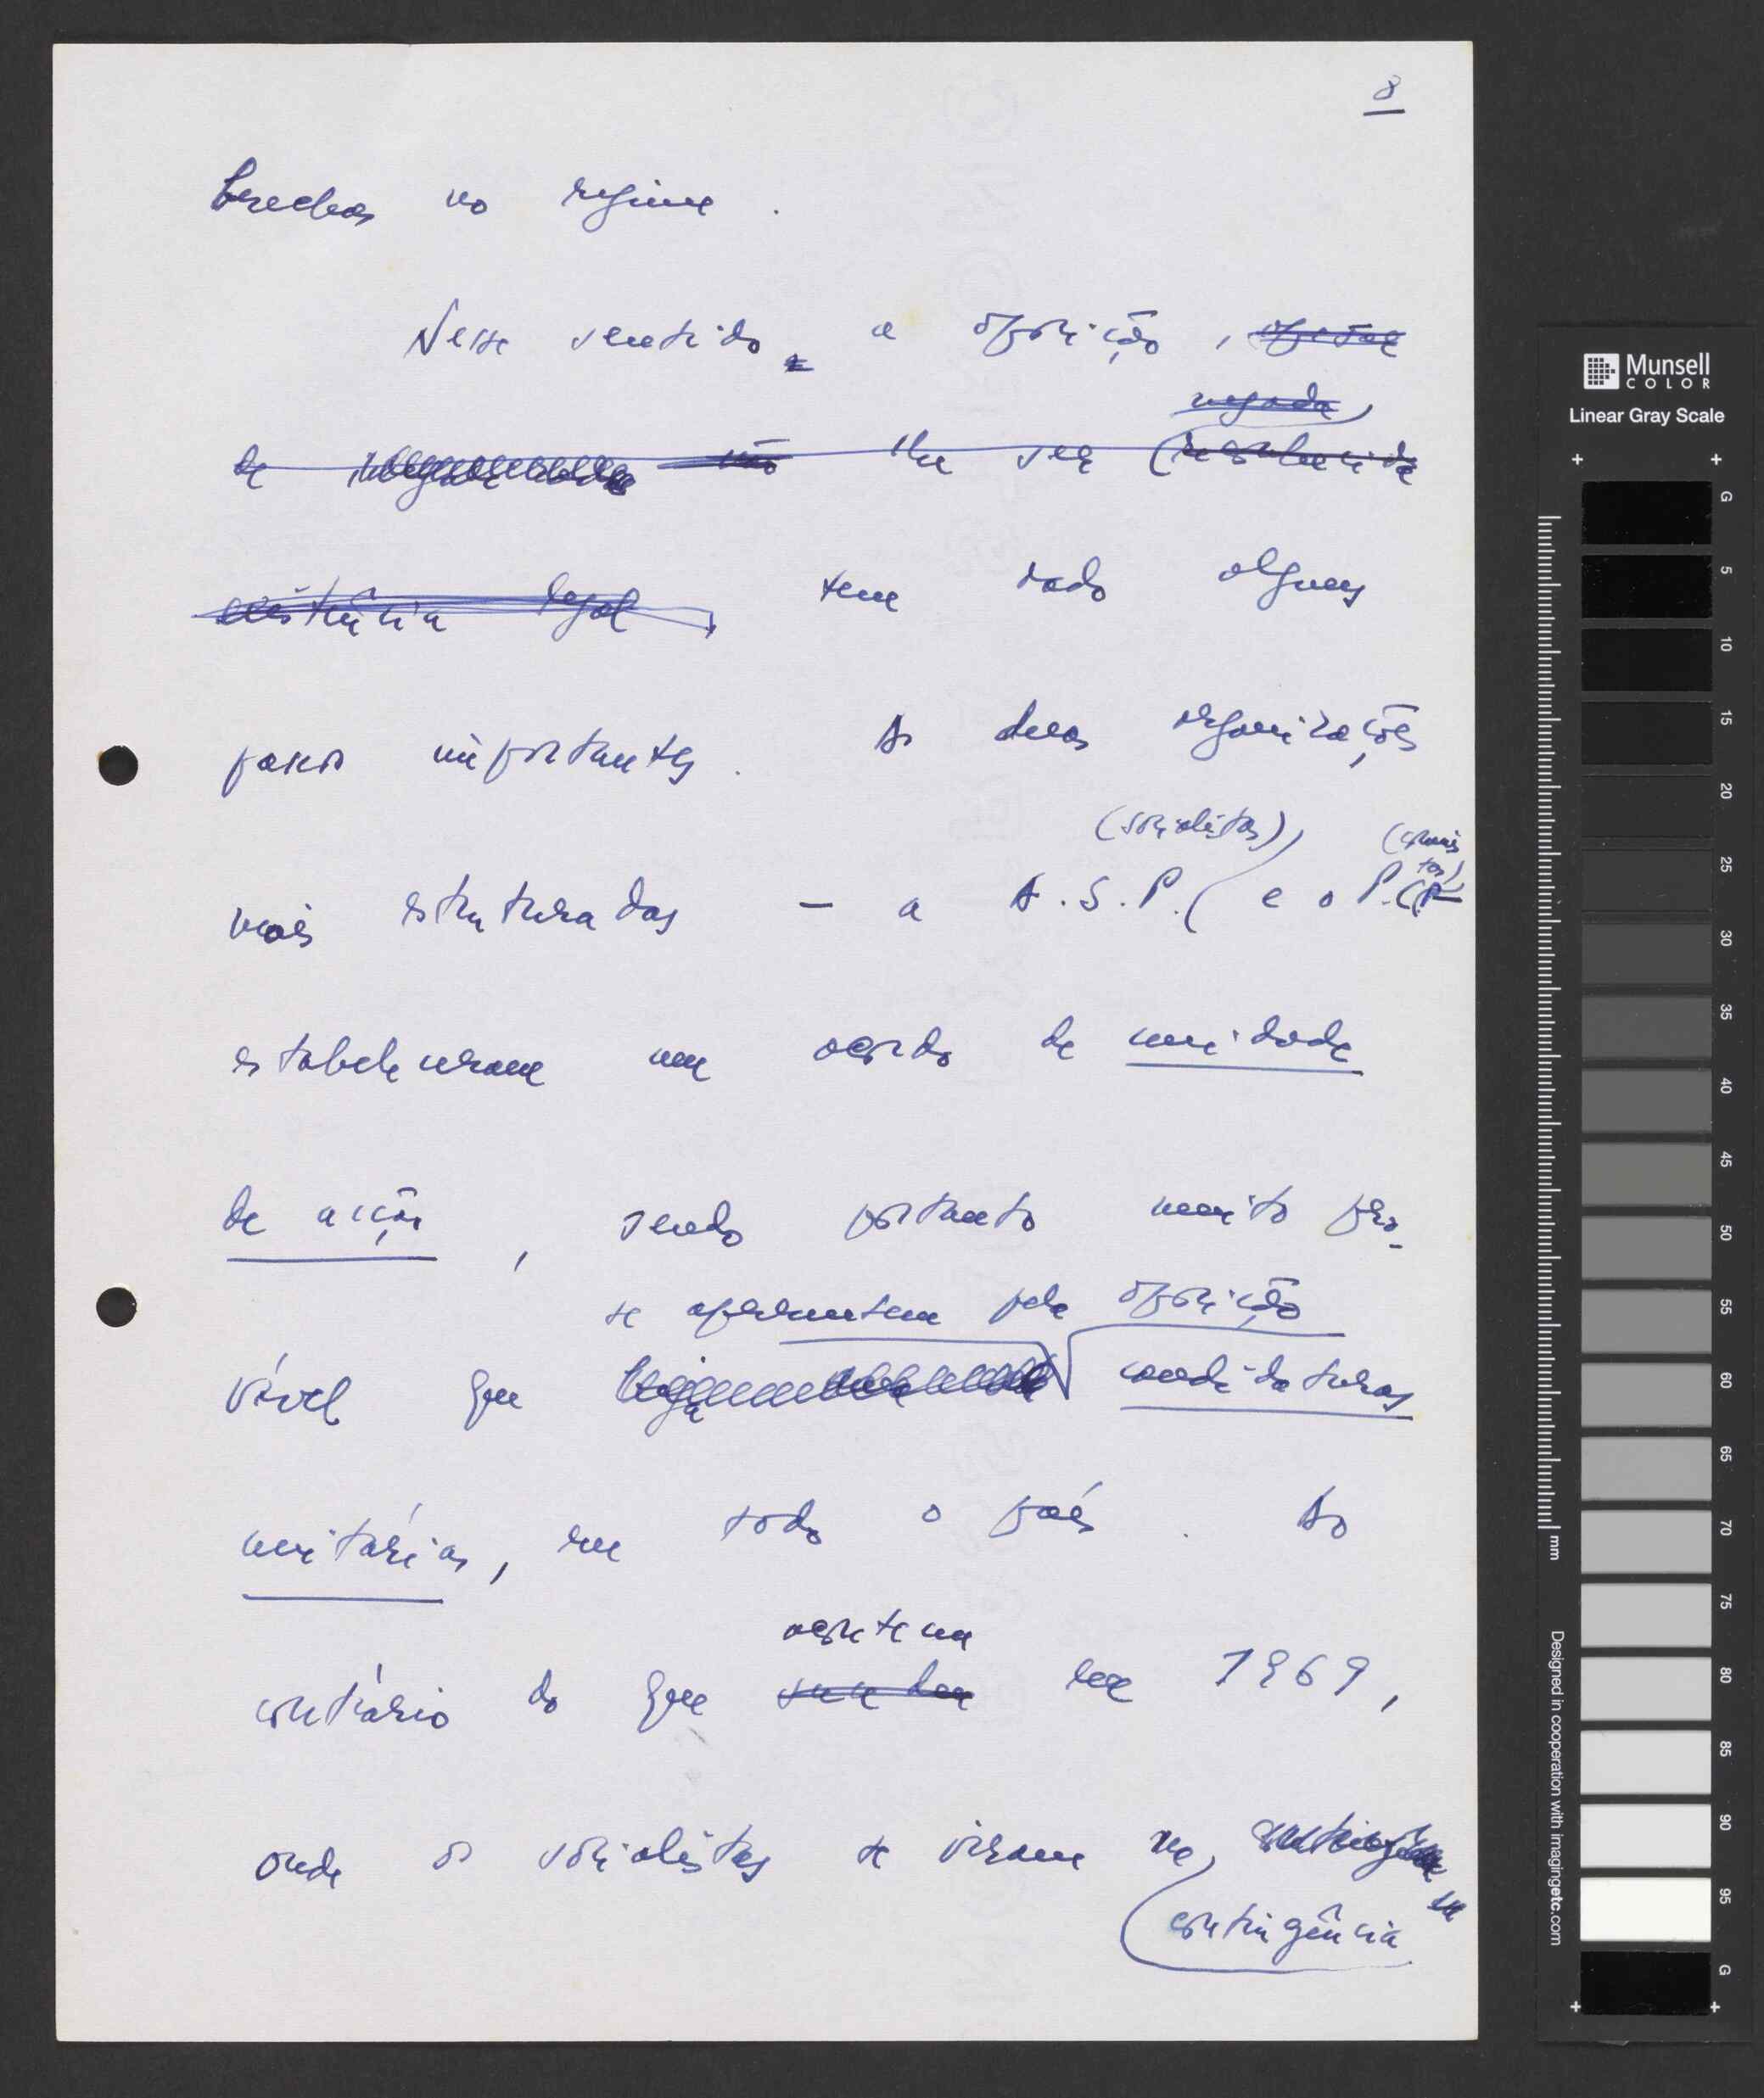 8
brechas no regime.
Nesse sentido, a oposição, apesar
negada
de não lhe ser (reconhecida
existência legal, tem dado alguns
passos importantes. As duas organizações
(socialistas), (comunis
tas)
mais estruturadas — a A.S.P. e o P.C.P.
estabeleceram um acordo de unidade
de acção, sendo portanto muito pro-
se apresentem pela oposição
vável que haja candidaturas
unitárias, em todo o país. Ao
aconteceu
contrário do que sucedeu em 1969,
onde os socialistas se viram na
contingência
Munsell
COLOR
Linear Gray Scale
G
5
10
15
20
25
30
35
40
45
50
55
60
65
70
75
80
85
90
95
G
mm
Designed in cooperation with imagingetc.com